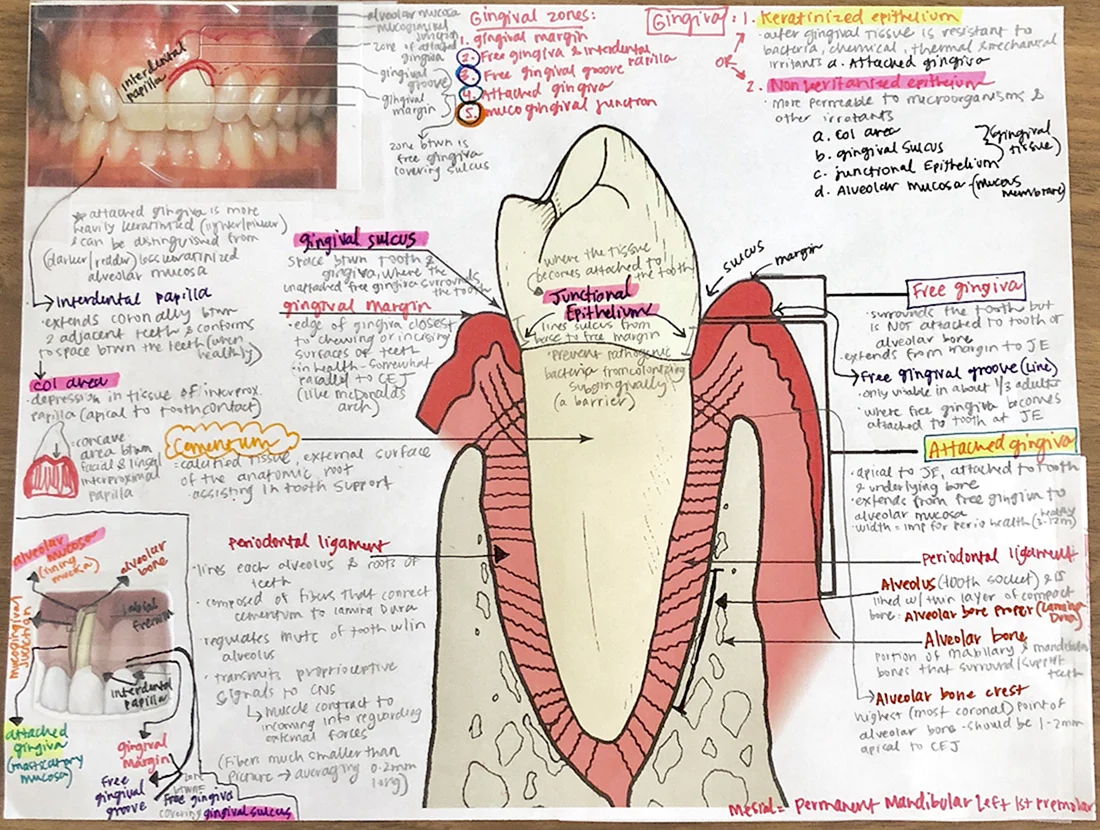 alveolar mucosa
mucogingival
junction
zone of attached
gingiva
gingival
groove
gingival
margin
interdental
papilla
Gingival zones:
1. gingival margin
2. Free gingiva & interdental
papilla
3. Free gingival groove
4. Attached gingiva
5. mucogingival junction
zone btwn is
free gingiva
covering sulcus
Gingiva:
OR
1. Keratinized epithelium
outer gingival tissue is resistant to
bacteria, chemical, thermal & mechanical
irritants a. Attached gingiva
2. Non keratinized epithelium
• More permeable to microorganisms &
other irritants
a. Col area
b. gingival sulcus
c. junctional Epithelium
d. Alveolar mucosa (mucus
membrane)
(gingival
tissue)
* attached gingiva is more
heavily keratinized
& can be distinguished from
(darker/redder) less keratinized
alveolar mucosa
Interdental papilla
• extends coronally btwn
2 adjacent teeth & conforms
to space btwn the teeth (when
healthy)
col area
• depression in tissue of interprox.
papilla (apical to tooth contact)
= concave
area btwn
facial & lingual
interproximal
papilla
gingival sulcus
space btwn tooth &
gingiva, where the
unattached free gingiva surrounds
the tooth
gingival margin
• edge of gingiva closest
to chewing or incising
surfaces of teeth
• in health - somewhat
parallel to CEJ
(like mcDonalds
arch)
Cementum
= calcified tissue, external surface
of the anatomic root
- assisting in tooth support
where the tissue
becomes attached to
the tooth
Junctional
Epithelium
lines sulcus from
base to free margin
• prevent pathogenic
bacteria from colonizing
subgingivally
(a barrier)
sulcus
margin
Free gingiva
• surrounds the tooth but
is NOT attached to tooth or
alveolar bone
• extends from margin to JE
Free gingival groove (line)
• only visible in about 1/3 adults
• where free gingiva becomes
attached to tooth at JE
Attached gingiva
• apical to JE, attached to tooth
& underlying bone
• extends from free gingiva to
alveolar mucosa
width = imp for perio health
periodontal ligament
• lines each alveolus & roots of
teeth
• composed of fibers that connect
cementum to lamina dura
• regulates mvmt of tooth w/in
alveolus
• transmits proprioceptive
signals to CNS
↳ muscle contract to
incoming info regarding
external forces
(Fibers much smaller than
picture → averaging 0.2mm
long)
Periodontal ligament
Alveolus (tooth socket) & is
lined w/ thin layer of compact
bone: Alveolar bone proper (Lamina
Dura)
Alveolar bone
portion of maxillary & mandibular
bones that surround/support
teeth
Alveolar bone crest
highest (most coronal) point of
alveolar bone - should be 1-2mm
apical to CEJ
alveolar mucosa
(lining
mucosa)
alveolar
bone
labial
frenum
mucogingival
junction
interdental
papilla
attached
gingiva
(masticatory
mucosa)
gingival
margin
free
gingival
groove
free gingiva
covering gingival sulcus
Mesial = Permanent Mandibular left 1st premolar